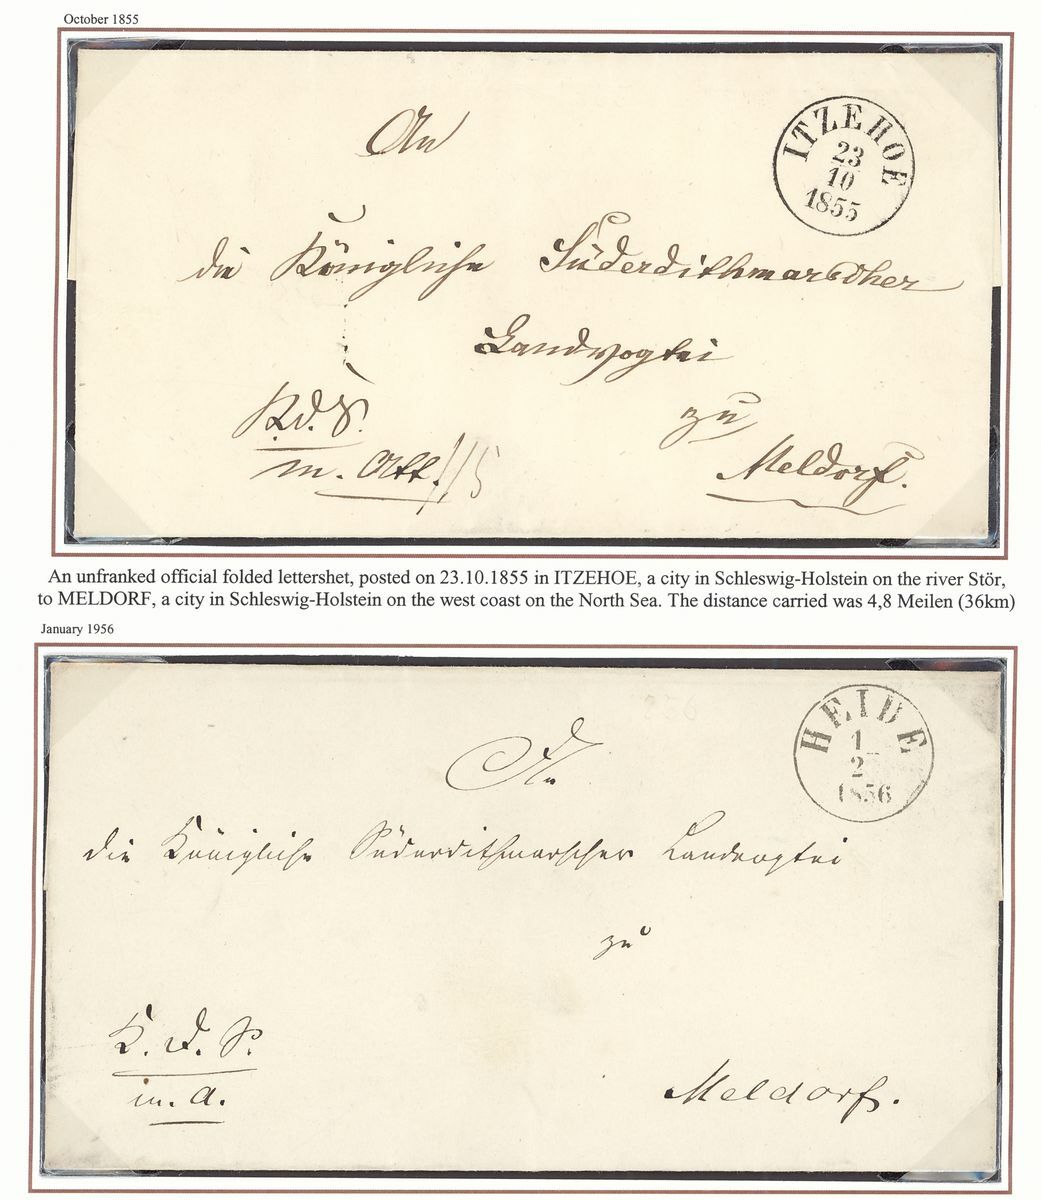 October 1855
An
ITZEHOE
23
10
1855
die Königliche Süderdithmarscher
Landvogtei
K.d.S.
zu
m. Att. //5
Meldorf.
An unfranked official folded lettershet, posted on 23.10.1855 in ITZEHOE, a city in Schleswig-Holstein on the river Stör,
to MELDORF, a city in Schleswig-Holstein on the west coast on the North Sea. The distance carried was 4,8 Meilen (36km)
January 1956
HEIDE
1
2
1856
An
die Königliche Süderdithmarscher Landvogtei
zu
K. d. S.
m. a.
Meldorf.